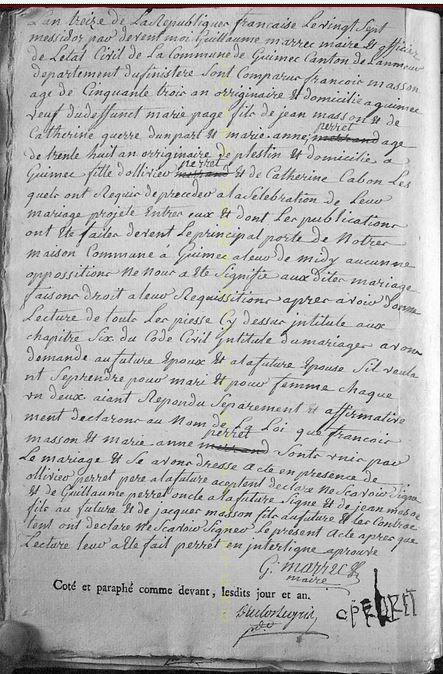 L'an treize de La Republique francaise Le vingt Sept
messidor par devent moi Guillaume marrec maire & officier
de Letat Civil de La Commune de Guimec Canton de Lanmeur
departement du finistere Sont Comparus francois masson
age de Cinquante trois an originaire & domicilie a guimec
veuf du deffunct marie page fils de jean masson & de
Catherine guerre dun part & marie anne perret age
de trente huit an originaire de plestin & domicilie a
Guimec fille dollivier perret & de Catherine Cabon Les
quels ont Requis de proceder a la Selebration de Leur
mariage projete Entre eux & dont Les publications
ont ete faites devent Le principal porte de Notre
maison Commune a Guimec a leur de midy aucunne
oppossitions Ne Nous a ete Signifie aux Dites mariage
faisons droit a leur Requissitions apres avoir donne
Lecture de touts Les piesse Cy dessus intitule aux
chapitre Six du Code Civil intitule du mariage avons
demande au future Epoux & a la future Epouse Sil veula
nt Seprendre pour mari & pour femme Chaque
un deux aiant Repondu Separement & affirmative
ment declarons au Nom de La Loi que francois
masson & marie anne perret Sont unis par
Le mariage & Se avons dresse acte en presence de
ollivier perret pere a la future declare Ne Scavoir Signe
& de Guillaume perret oncle a la future Signe & de jean masson
fils au future & de jacques masson fils au future & Les Contrac
tent ont declare Ne Scavoir Signer Le present Acte apres que
Lecture leur a ete fait perret en interligne aprouve
G. marrec
maire
Coté et paraphé comme devant, lesdits jour et an.